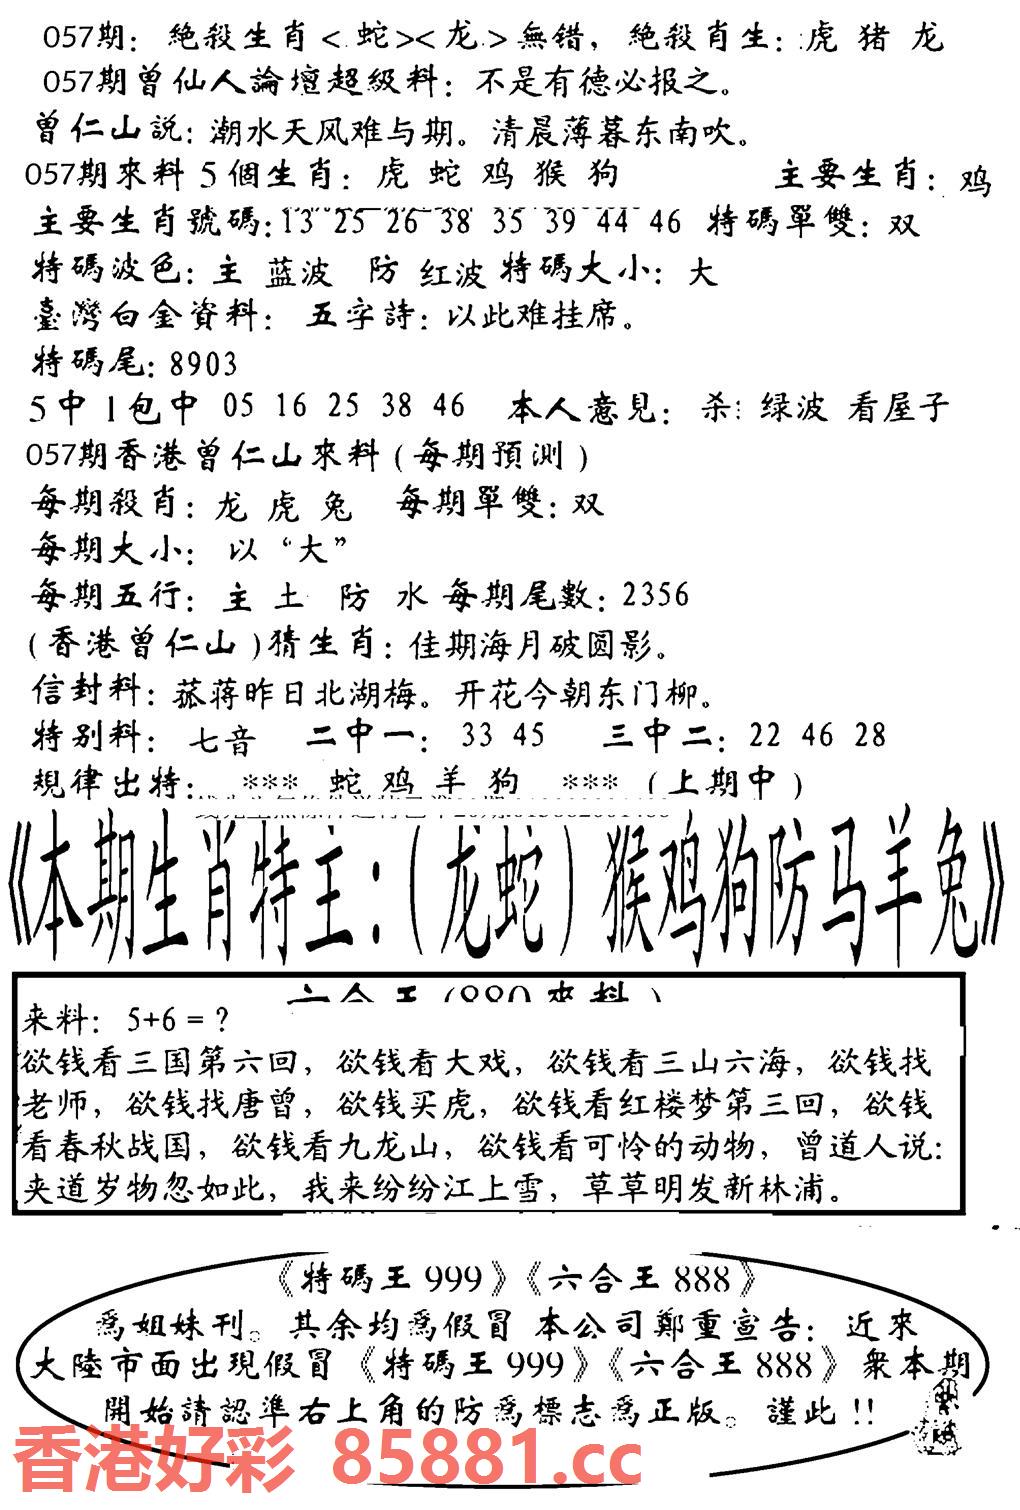 057期：絶殺生肖<蛇><龙>無错，絶殺肖生：虎 猪 龙
057期曾仙人論壇超級料：不是有德必报之。
曾仁山説：潮水天风难与期。清晨薄暮东南吹。
057期來料5個生肖：虎 蛇 鸡 猴 狗 主要生肖：鸡
主要生肖號碼：13 25 26 38 35 39 44 46 特碼單雙：双
特碼波色：主 蓝波 防 红波 特碼大小：大
臺灣白金資料： 五字詩：以此难挂席。
特碼尾：8903
5中1包中 05 16 25 38 46 本人意見： 杀：绿波 看屋子
057期香港曾仁山來料(每期預測)
每期殺肖：龙 虎 兔 每期單雙：双
每期大小： 以“大”
每期五行： 主 土 防 水 每期尾數：2356
(香港曾仁山)猜生肖：佳期海月破圆影。
信封料：菰蒋昨日北湖梅。开花今朝东门柳。
特别料： 七音 二中一： 33 45 三中二：22 46 28
規律出特： *** 蛇 鸡 羊 狗 *** (上期中)
《本期生肖特主：(龙蛇)猴鸡狗防马羊兔》
六合王(880來料)
来料： 5+6=？
欲钱看三国第六回，欲钱看大戏，欲钱看三山六海，欲钱找
老师，欲钱找唐曾，欲钱买虎，欲钱看红楼梦第三回，欲钱
看春秋战国，欲钱看九龙山，欲钱看可怜的动物，曾道人说：
夹道岁物忽如此，我来纷纷江上雪，草草明发新林浦。
《特碼王999》《六合王888》
爲姐妹刊。其余均爲假冒 本公司鄭重宣告： 近來
大陸市面出現假冒《特碼王999》《六合王888》衆本期
開始請認準右上角的防爲標志爲正版。謹此!!
香港好彩 85881.cc